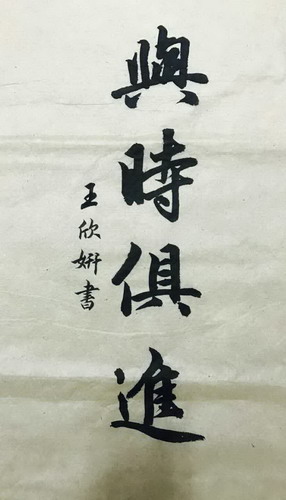 與時俱進
王欣妍書